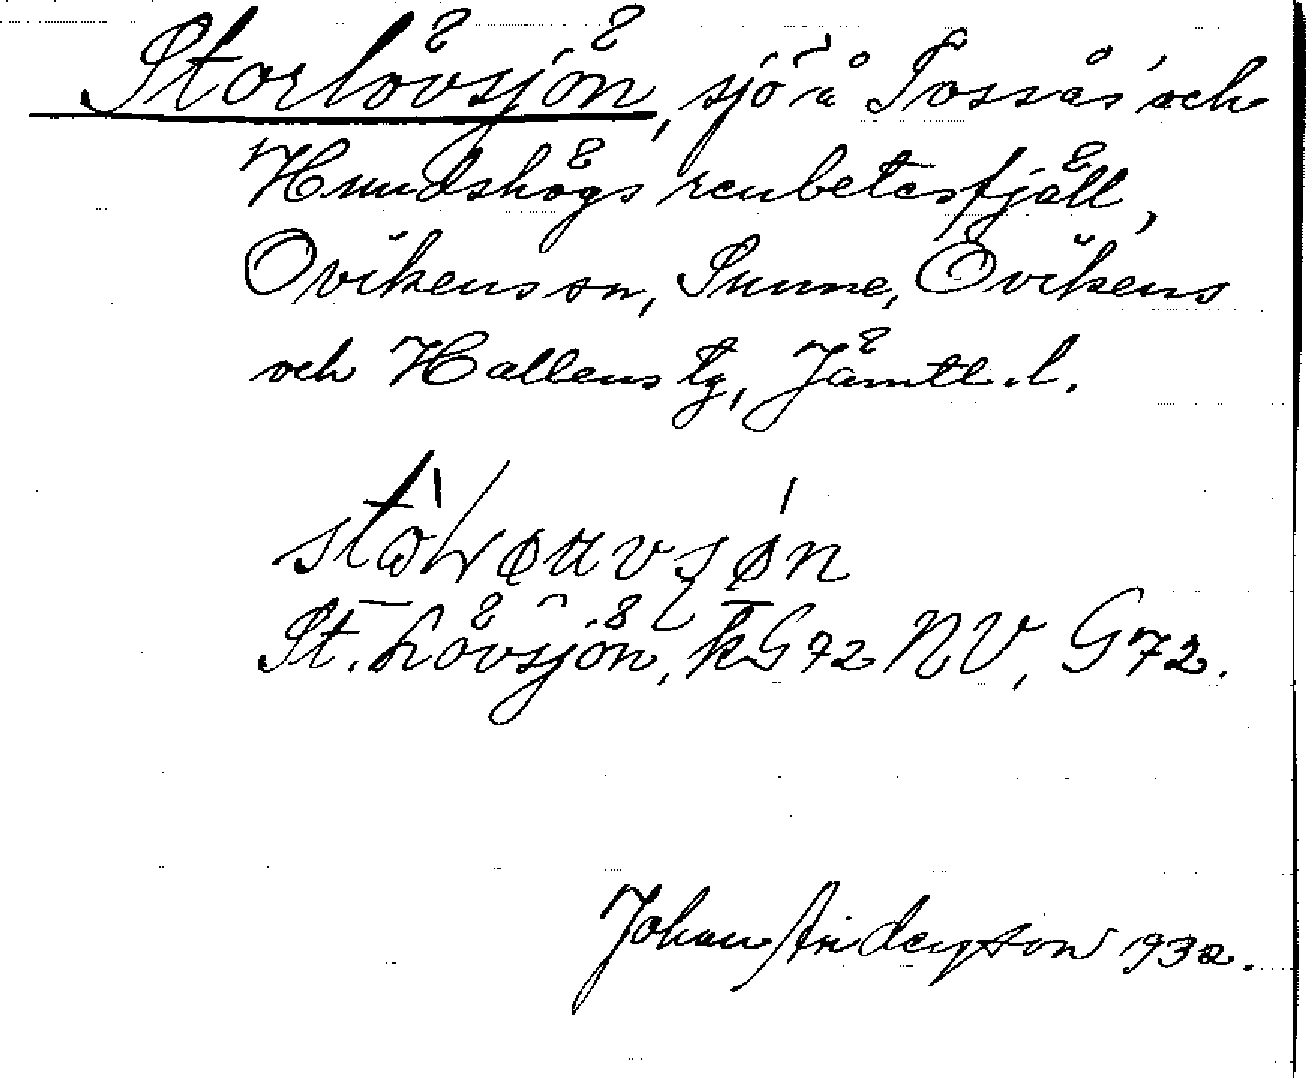 Storlövsjön, sjö å Tossås och
Hundshögs renbetesfjäll,
Ovikens sn, Sunne, Ovikens
och Hallens tg, Jämtl. l.
St. Lövsjön, k G 72 NV, G 72.
Johan Anderzson 1932.